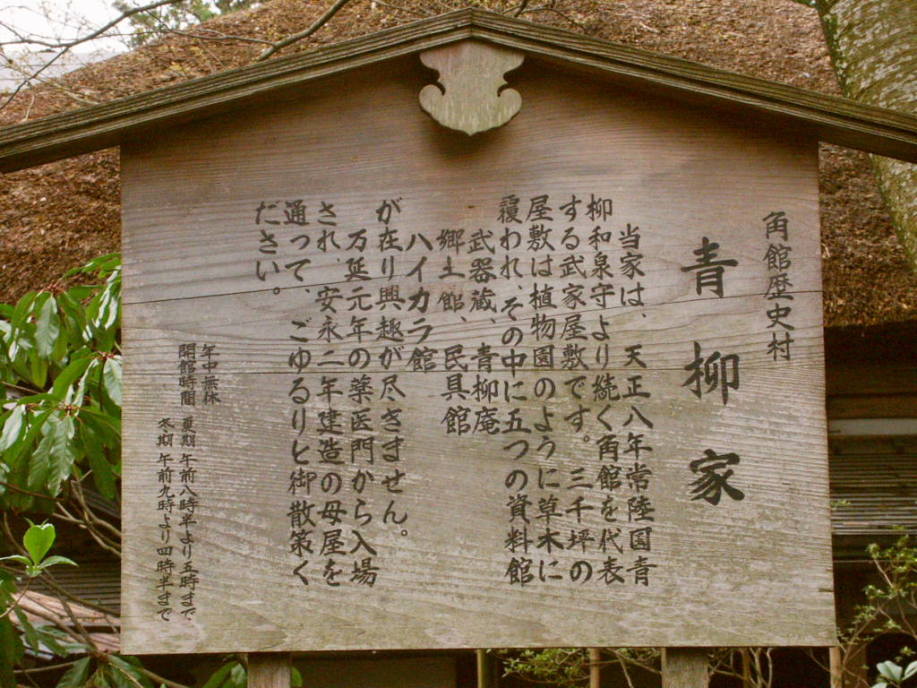 角館歴史村
青柳家
当家は、天正八年常陸国青
柳和泉守より続く角館を代表
する武家屋敷です。三千坪の
屋敷は植物園のように草木に
覆われ、その中に五つの資料館
武器蔵、青柳庵
郷土館、民具館
ハイカラ館
が在り興趣が尽きません。
万延元年の薬医門から入場
され、安永二年建造の母屋を
通って、ごゆるりと御散策く
ださい。
年中無休
開館時間 夏期 午前八時半より五時まで
冬期 午前九時より四時半まで